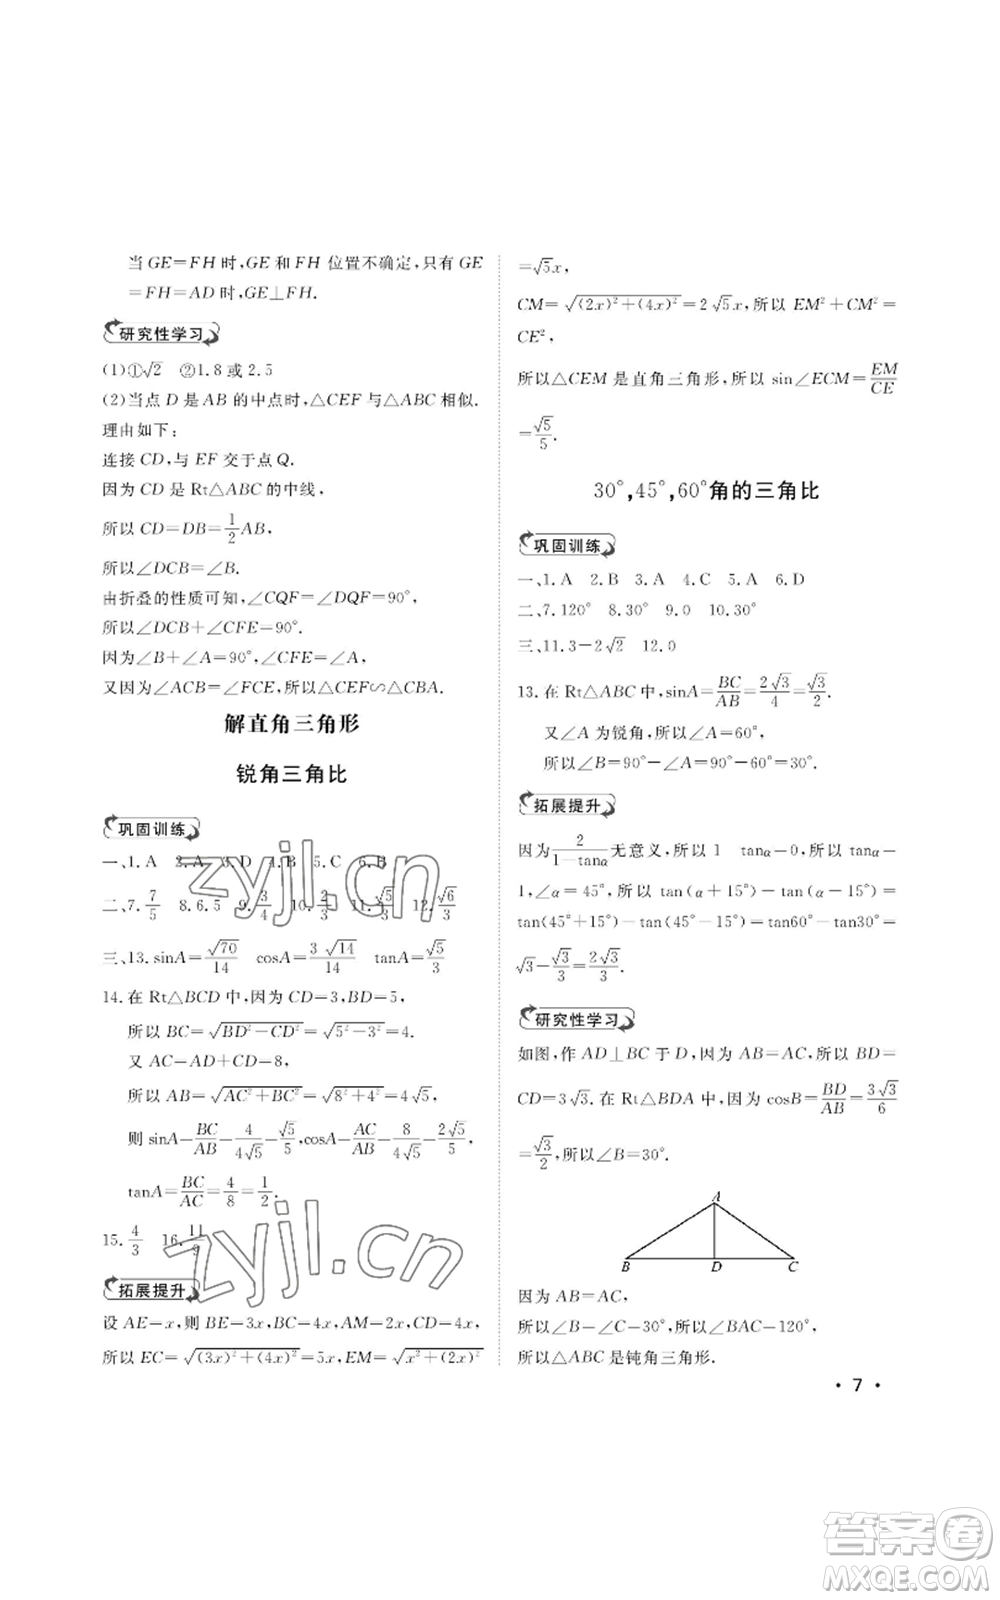 当 GE=FH 时,GE 和 FH 位置不确定,只有 GE
=FH=AD 时,GE⊥FH.
研究性学习
(1)①√2 ②1.8 或 2.5
(2)当点 D 是 AB 的中点时,△CEF 与△ABC 相似.
理由如下:
连接 CD,与 EF 交于点 Q.
因为 CD 是 Rt△ABC 的中线,
所以 CD=DB=1/2 AB,
所以∠DCB=∠B.
由折叠的性质可知,∠CQF=∠DQF=90°,
所以∠DCB+∠CFE=90°.
因为∠B+∠A=90°,∠CFE=∠A,
又因为∠ACB=∠FCE,所以△CEF∽△CBA.
解直角三角形
锐角三角比
巩固训练
一、1.A 2.A 3.D 4.B 5.C 6.B
二、7.7/5 8.6.5 9.3/4 10.2/3 11.√5/3 12.√6/3
三、13.sinA=√70/14 cosA=3√14/14 tanA=√5/3
14.在 Rt△BCD 中,因为 CD=3,BD=5,
所以 BC=√(BD²-CD²)=√(5²-3²)=4.
又 AC-AD+CD-8,
所以 AB=√(AC²+BC²)=√(8²+4²)=4√5,
则 sinA-BC/AB-4/4√5-√5/5,cosA-AC/AB-8/4√5-2√5/5,
tanA=BC/AC=4/8=1/2.
15.4/3 16.11/9
拓展提升
设 AE-x,则 BE-3x,BC-4x,AM-2x,CD-4x,
所以 EC=√((3x)²+(4x)²)=5x,EM=√(x²+(2x)²)
=√5x,
CM=√((2x)²+(4x)²)=2√5x,所以 EM²+CM²=
CE²,
所以△CEM 是直角三角形,所以 sin∠ECM=EM/CE
=√5/5.
30°,45°,60°角的三角比
巩固训练
一、1.A 2.B 3.A 4.C 5.A 6.D
二、7.120° 8.30° 9.0 10.30°
三、11.3-2√2 12.0
13.在 Rt△ABC 中,sinA=BC/AB=2√3/4=√3/2.
又∠A 为锐角,所以∠A=60°,
所以∠B=90°-∠A=90°-60°=30°.
拓展提升
因为2/(1-tanα)无意义,所以 1 tanα-0,所以 tanα-
1,∠α=45°,所以 tan(α+15°)-tan(α-15°)=
tan(45°+15°)-tan(45°-15°)=tan60°-tan30°=
√3-√3/3=2√3/3.
研究性学习
如图,作 AD⊥BC 于 D,因为 AB=AC,所以 BD=
CD=3√3.在 Rt△BDA 中,因为 cosB=BD/AB=3√3/6
=√3/2,所以∠B=30°.
A
B D C
因为 AB=AC,
所以∠B-∠C-30°,所以∠BAC-120°,
所以△ABC 是钝角三角形.
• 7 •
zyjl.cn
zyjl.cn
答案圈
MXQE.COM